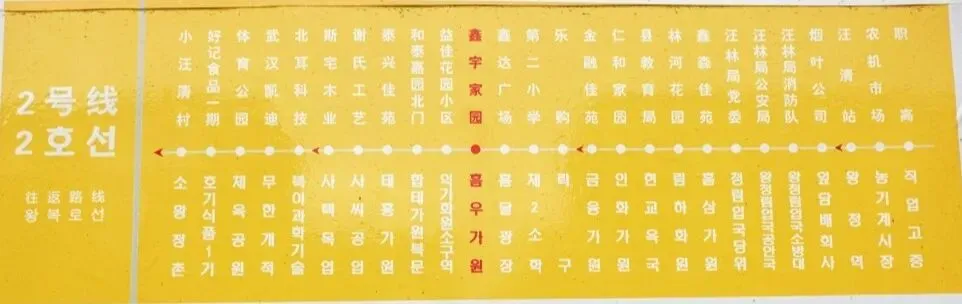 2号线
2호선
往返路线
왕복로선
小汪清村
好记食品一期
体育公园
武汉凯迪
北耳科技
斯宅木业
谢氏工艺
泰兴佳苑
和泰嘉园北门
益佳花园小区
鑫宇家园
鑫达广场
第二小学
乐购
金融佳苑
仁和家园
县教育局
林河花园
鑫淼佳苑
汪林局党委
汪林局公安局
汪林局消防队
烟叶公司
汪清站
农机市场
职高
소왕청촌
호기식품1기
체육공원
무한개적
북이과학기술
사택목업
사씨공업
태흥가원
합태가원북문
익가화원소구역
흠우가원
흠달광장
제2소학
락구
금융가원
인화가원
현교육국
림하화원
흠삼가원
왕림업국공안국
왕림업국소방대
잎담배회사
왕청역
농기계시장
직업고중